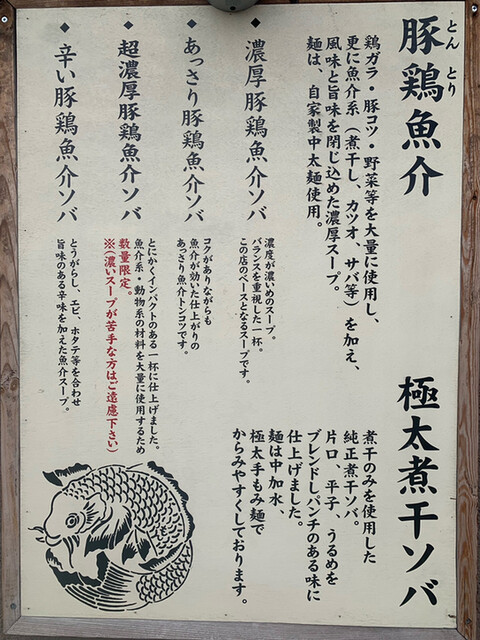 豚鶏魚介
とん とり
鶏ガラ・豚コツ・野菜等を大量に使用し、
更に魚介系（煮干し、カツオ、サバ等）を加え、
風味と旨味を閉じ込めた濃厚スープ。
麺は、自家製中太麺使用。
◆濃厚豚鶏魚介ソバ
濃度が濃いめのスープ。
バランスを重視した一杯。
この店のベースとなるスープです。
◆あっさり豚鶏魚介ソバ
コクがありながらも
魚介が効いた仕上がりの
あっさり魚介トンコツです。
◆超濃厚豚鶏魚介ソバ
とにかくインパクトのある一杯に仕上げました。
魚介系・動物系の材料を大量に使用するため
数量限定。
※（濃いスープが苦手な方はご遠慮下さい）
◆辛い豚鶏魚介ソバ
とうがらし、エビ、ホタテ等を合わせ
旨味のある辛味を加えた魚介スープ。
極太煮干ソバ
煮干のみを使用した
純正煮干ソバ。
片口、平子、うるめを
ブレンドしパンチのある味に
仕上げました。
麺は中加水、
極太手もみ麺で
からみやすくしております。